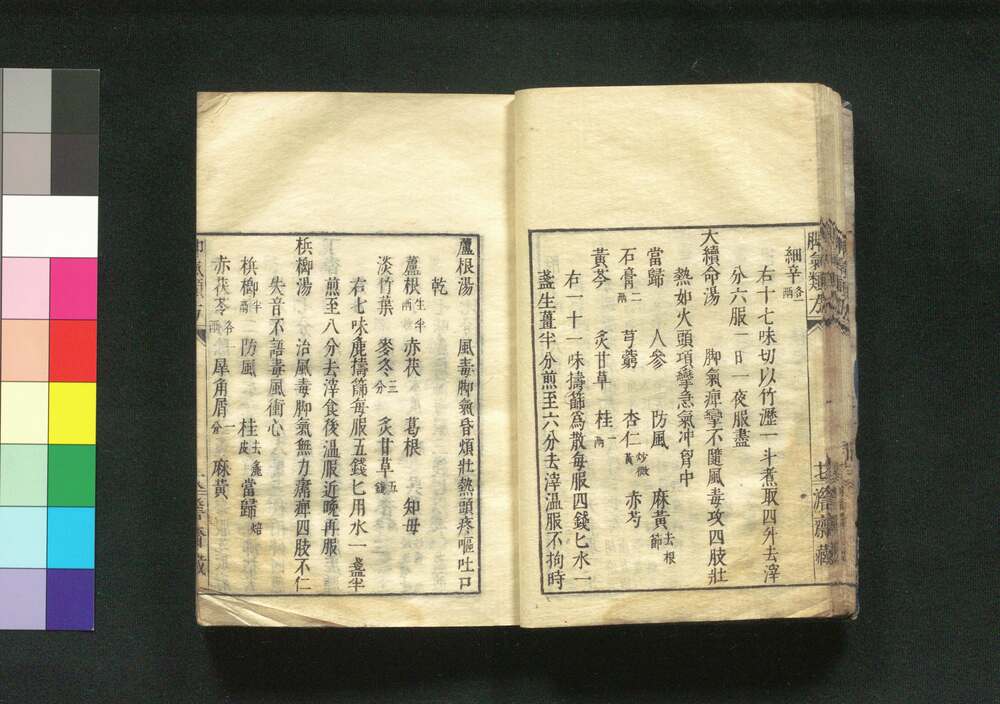 脚氣類方
七澹齋藏
細辛各兩
右十七味切以竹瀝一斗煮取四升去滓
分六服一日一夜服盡
大續命湯　脚氣痺攣不隨風毒攻四肢壯
熱如火頭項攣急氣冲胷中
當歸　人參　防風　麻黃去根節
石膏二兩　芎藭　杏仁炒微黃　赤芍
黃芩　炙甘草　桂一兩
右一十一味擣篩爲散每服四錢匕水一
盞生薑半分煎至六分去滓溫服不拘時
蘆根湯　風毒脚氣昏煩壯熱頭疼嘔吐口
乾
蘆根生半兩　赤茯　葛根　知母
淡竹葉　麥冬三分　炙甘草五錢
右七味麁擣篩每服五錢匕用水一盞半
煎至八分去滓食後溫服近晚再服
梹榔湯　治風毒脚氣無力𤸷痺四肢不仁
失音不語毒風衝心
梹榔半兩　防風　桂去麁皮　當歸焙
赤茯苓各兩　犀角屑一分　麻黃